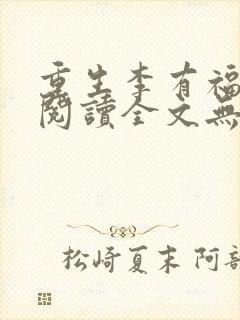 重生李有福
閱讀全文無
松崎夏末 阿部